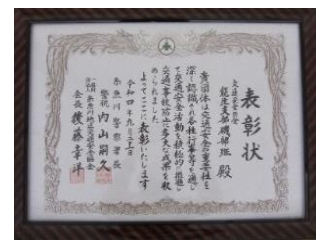 表彰状
交通安全協会
能生支部磯部班 殿
貴団体は交通安全の重要性を
深く認識され各種行事等を通じ
て交通安全活動を積極的に推進し
交通事故防止に多大な成果を収
められました
よってここに表彰いたします
令和四年九月二十一日
糸魚川警察署長
警視 内山嗣久
糸魚川地区交通安全協会
会長 後藤幸洋